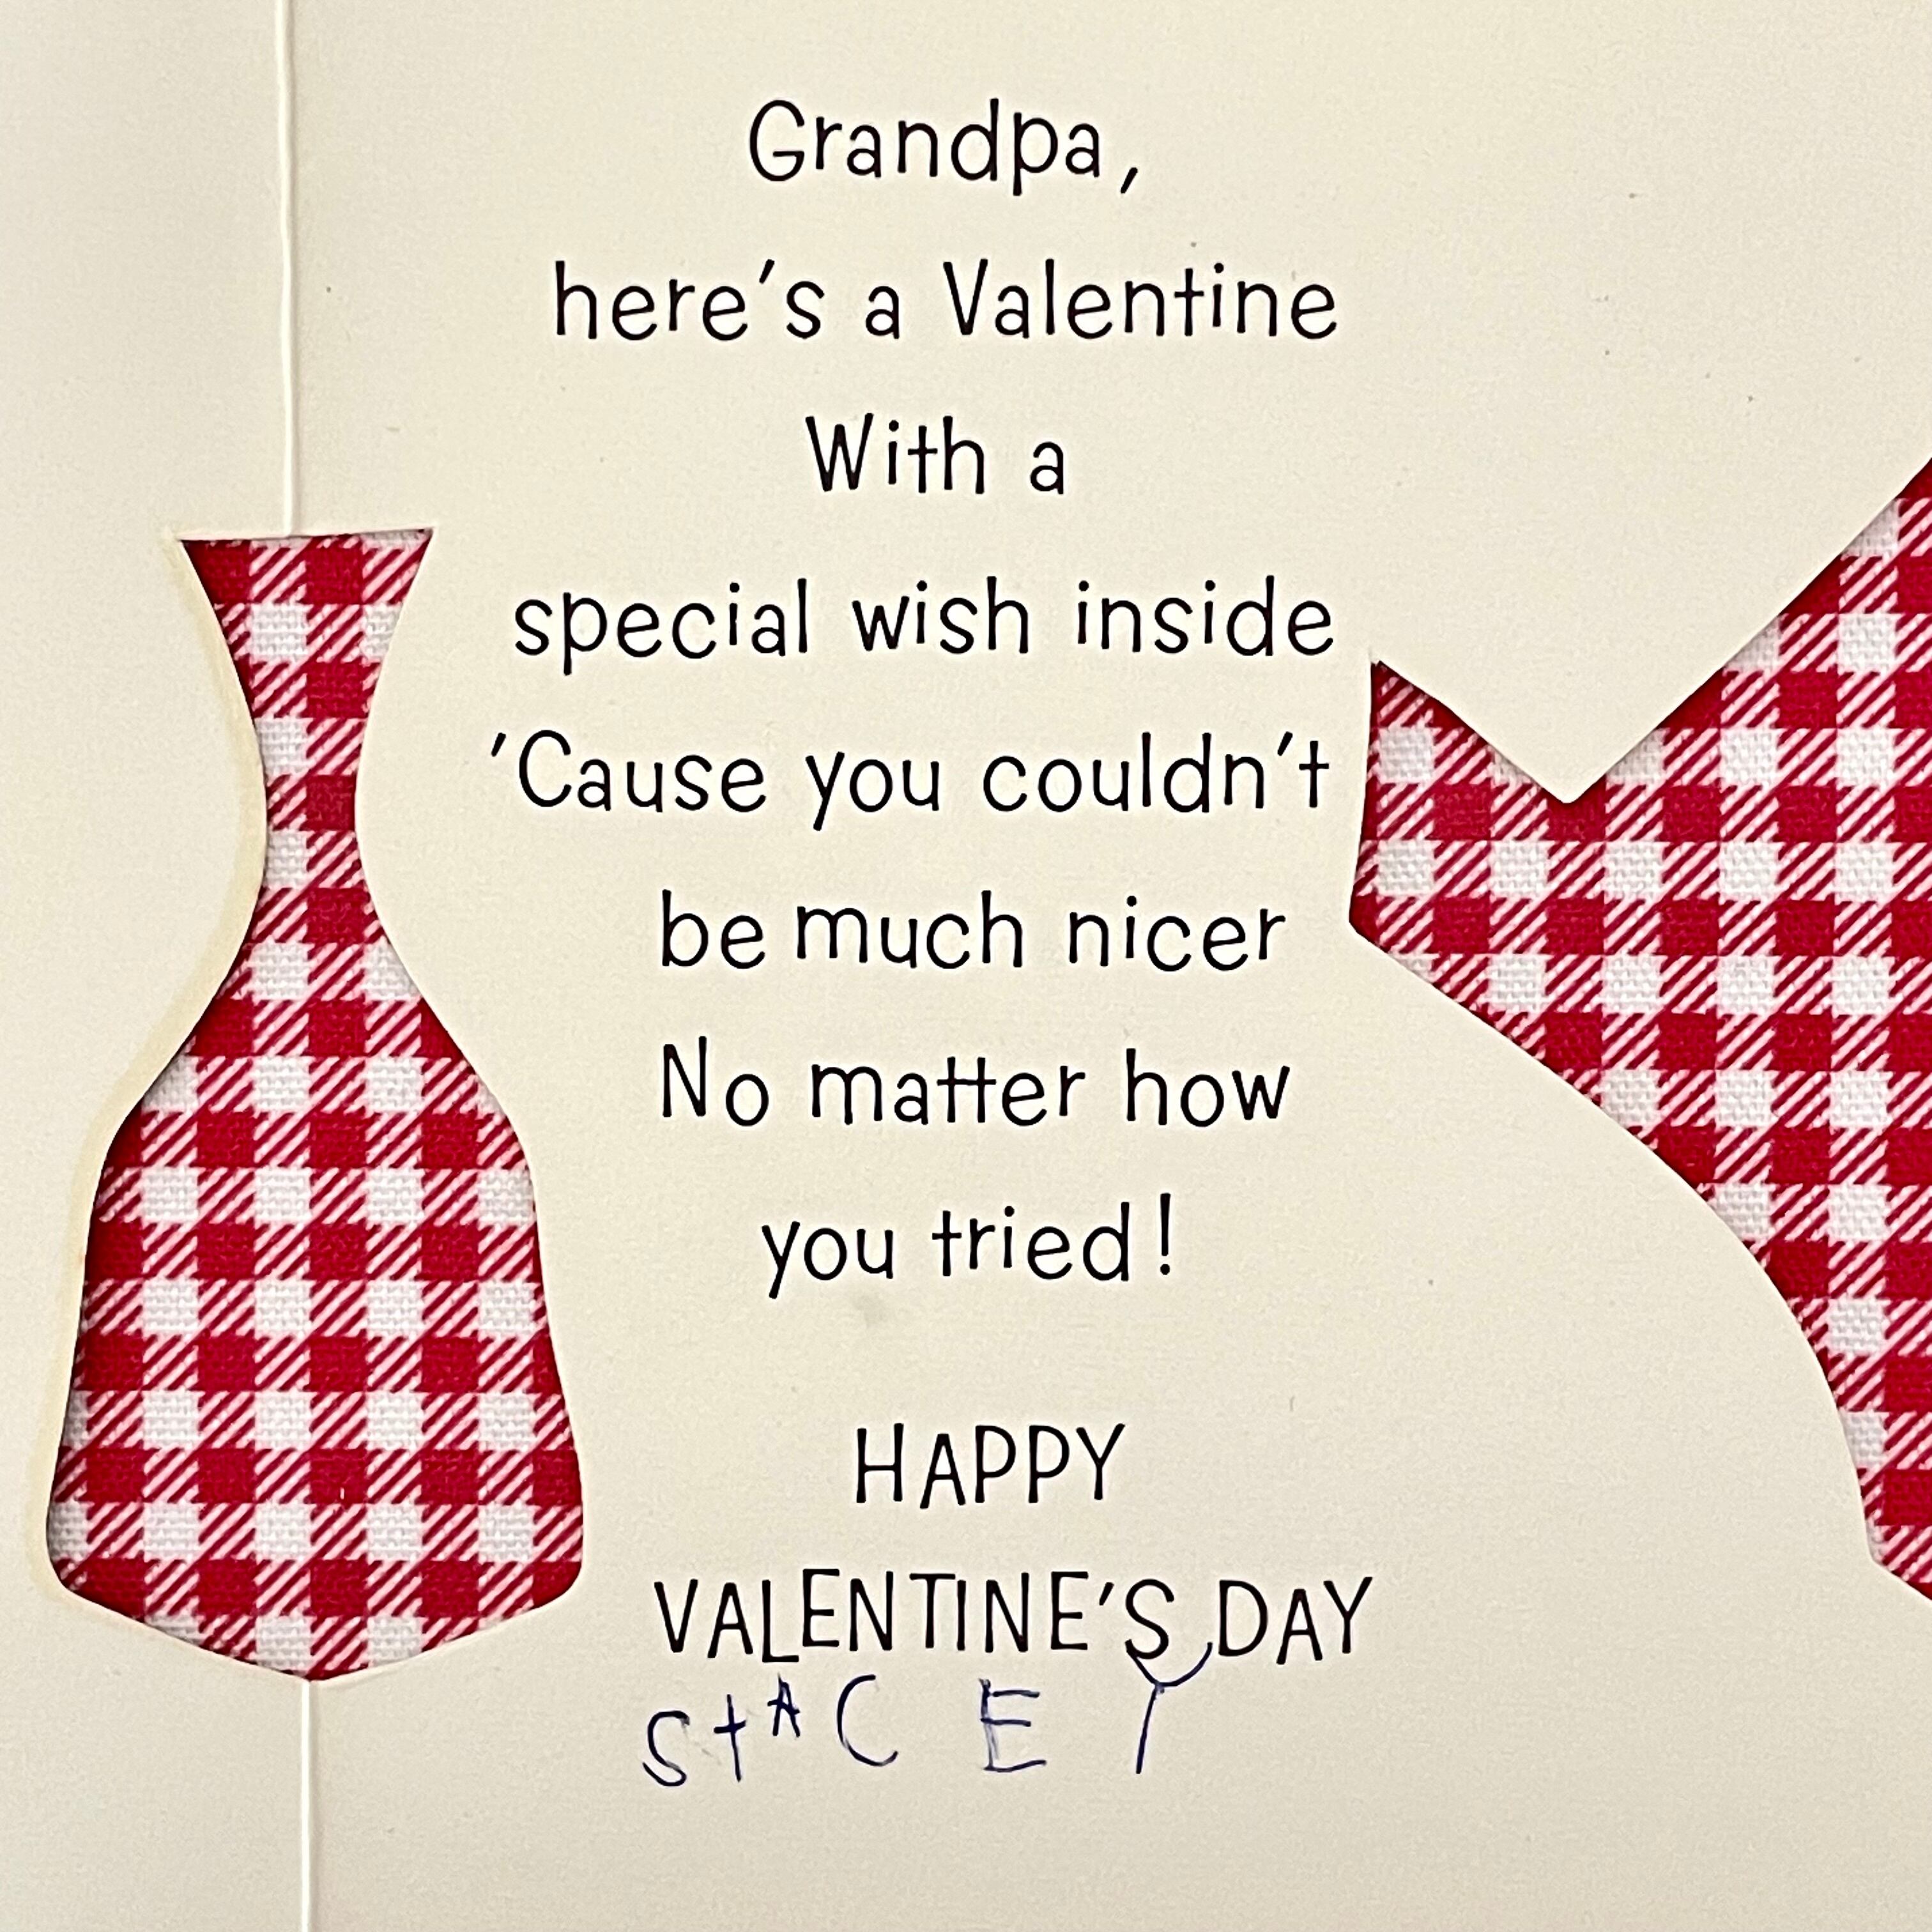 Grandpa,
here's a Valentine
With a
special wish inside
'Cause you couldn't
be much nicer
No matter how
you tried!
HAPPY
VALENTINE'S DAY
StACEY